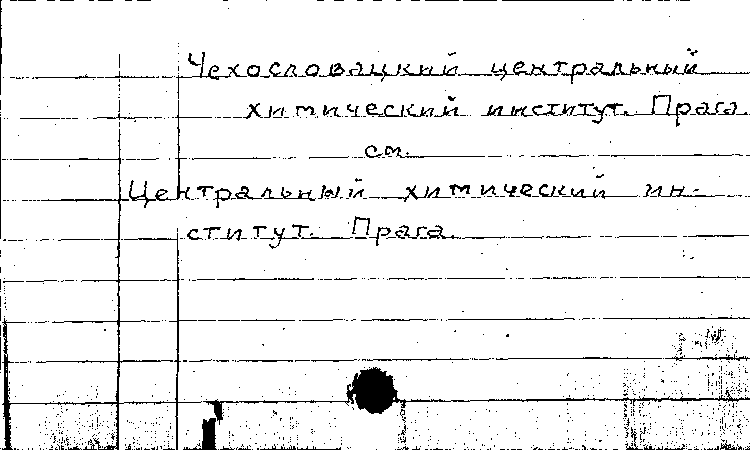 Чехословацкий центральный
химический институт. Прага.
см.
Центральный химический ин-
ститут. Прага.